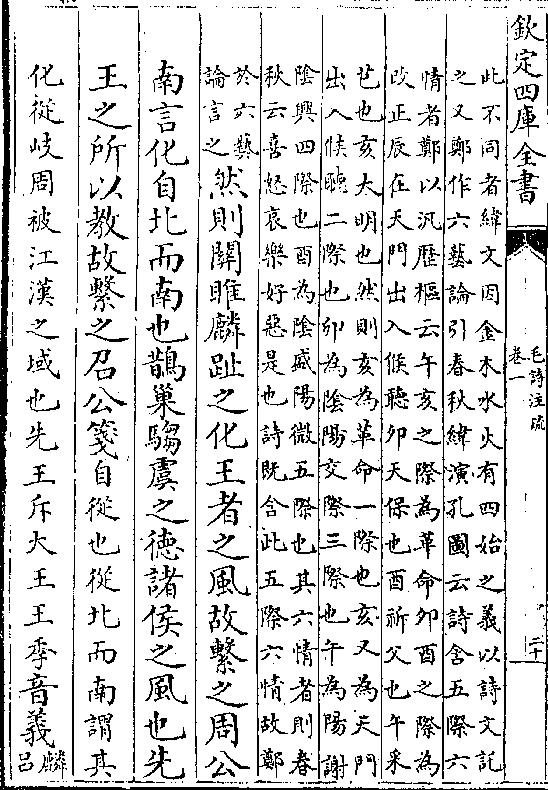 欽定四庫全書
毛詩注疏
卷一
二十
此不同者緯文因金木水火有四始之義以詩文託
之又鄭作六藝論引春秋緯演孔圖云詩含五際六
情者鄭以汎歴樞云午亥之際為革命卯酉之際為
改正辰在天門出入候聽卯天保也酉祈父也午采
芑也亥大明也然則亥為革命一際也亥又為天門
出入候聽二際也卯為陰陽交際三際也午為陽謝
陰興四際也酉為陰盛陽微五際也其六情者則春
秋云喜怒哀樂好惡是也詩既含此五際六情故鄭
於六藝
論言之
然則關雎麟趾之化王者之風故繫之周公
南言化自北而南也鵲巢騶虞之德諸侯之風也先
王之所以教故繫之召公箋自從也從北而南謂其
化從岐周被江漢之域也先王斥大王王季音義麟
吕